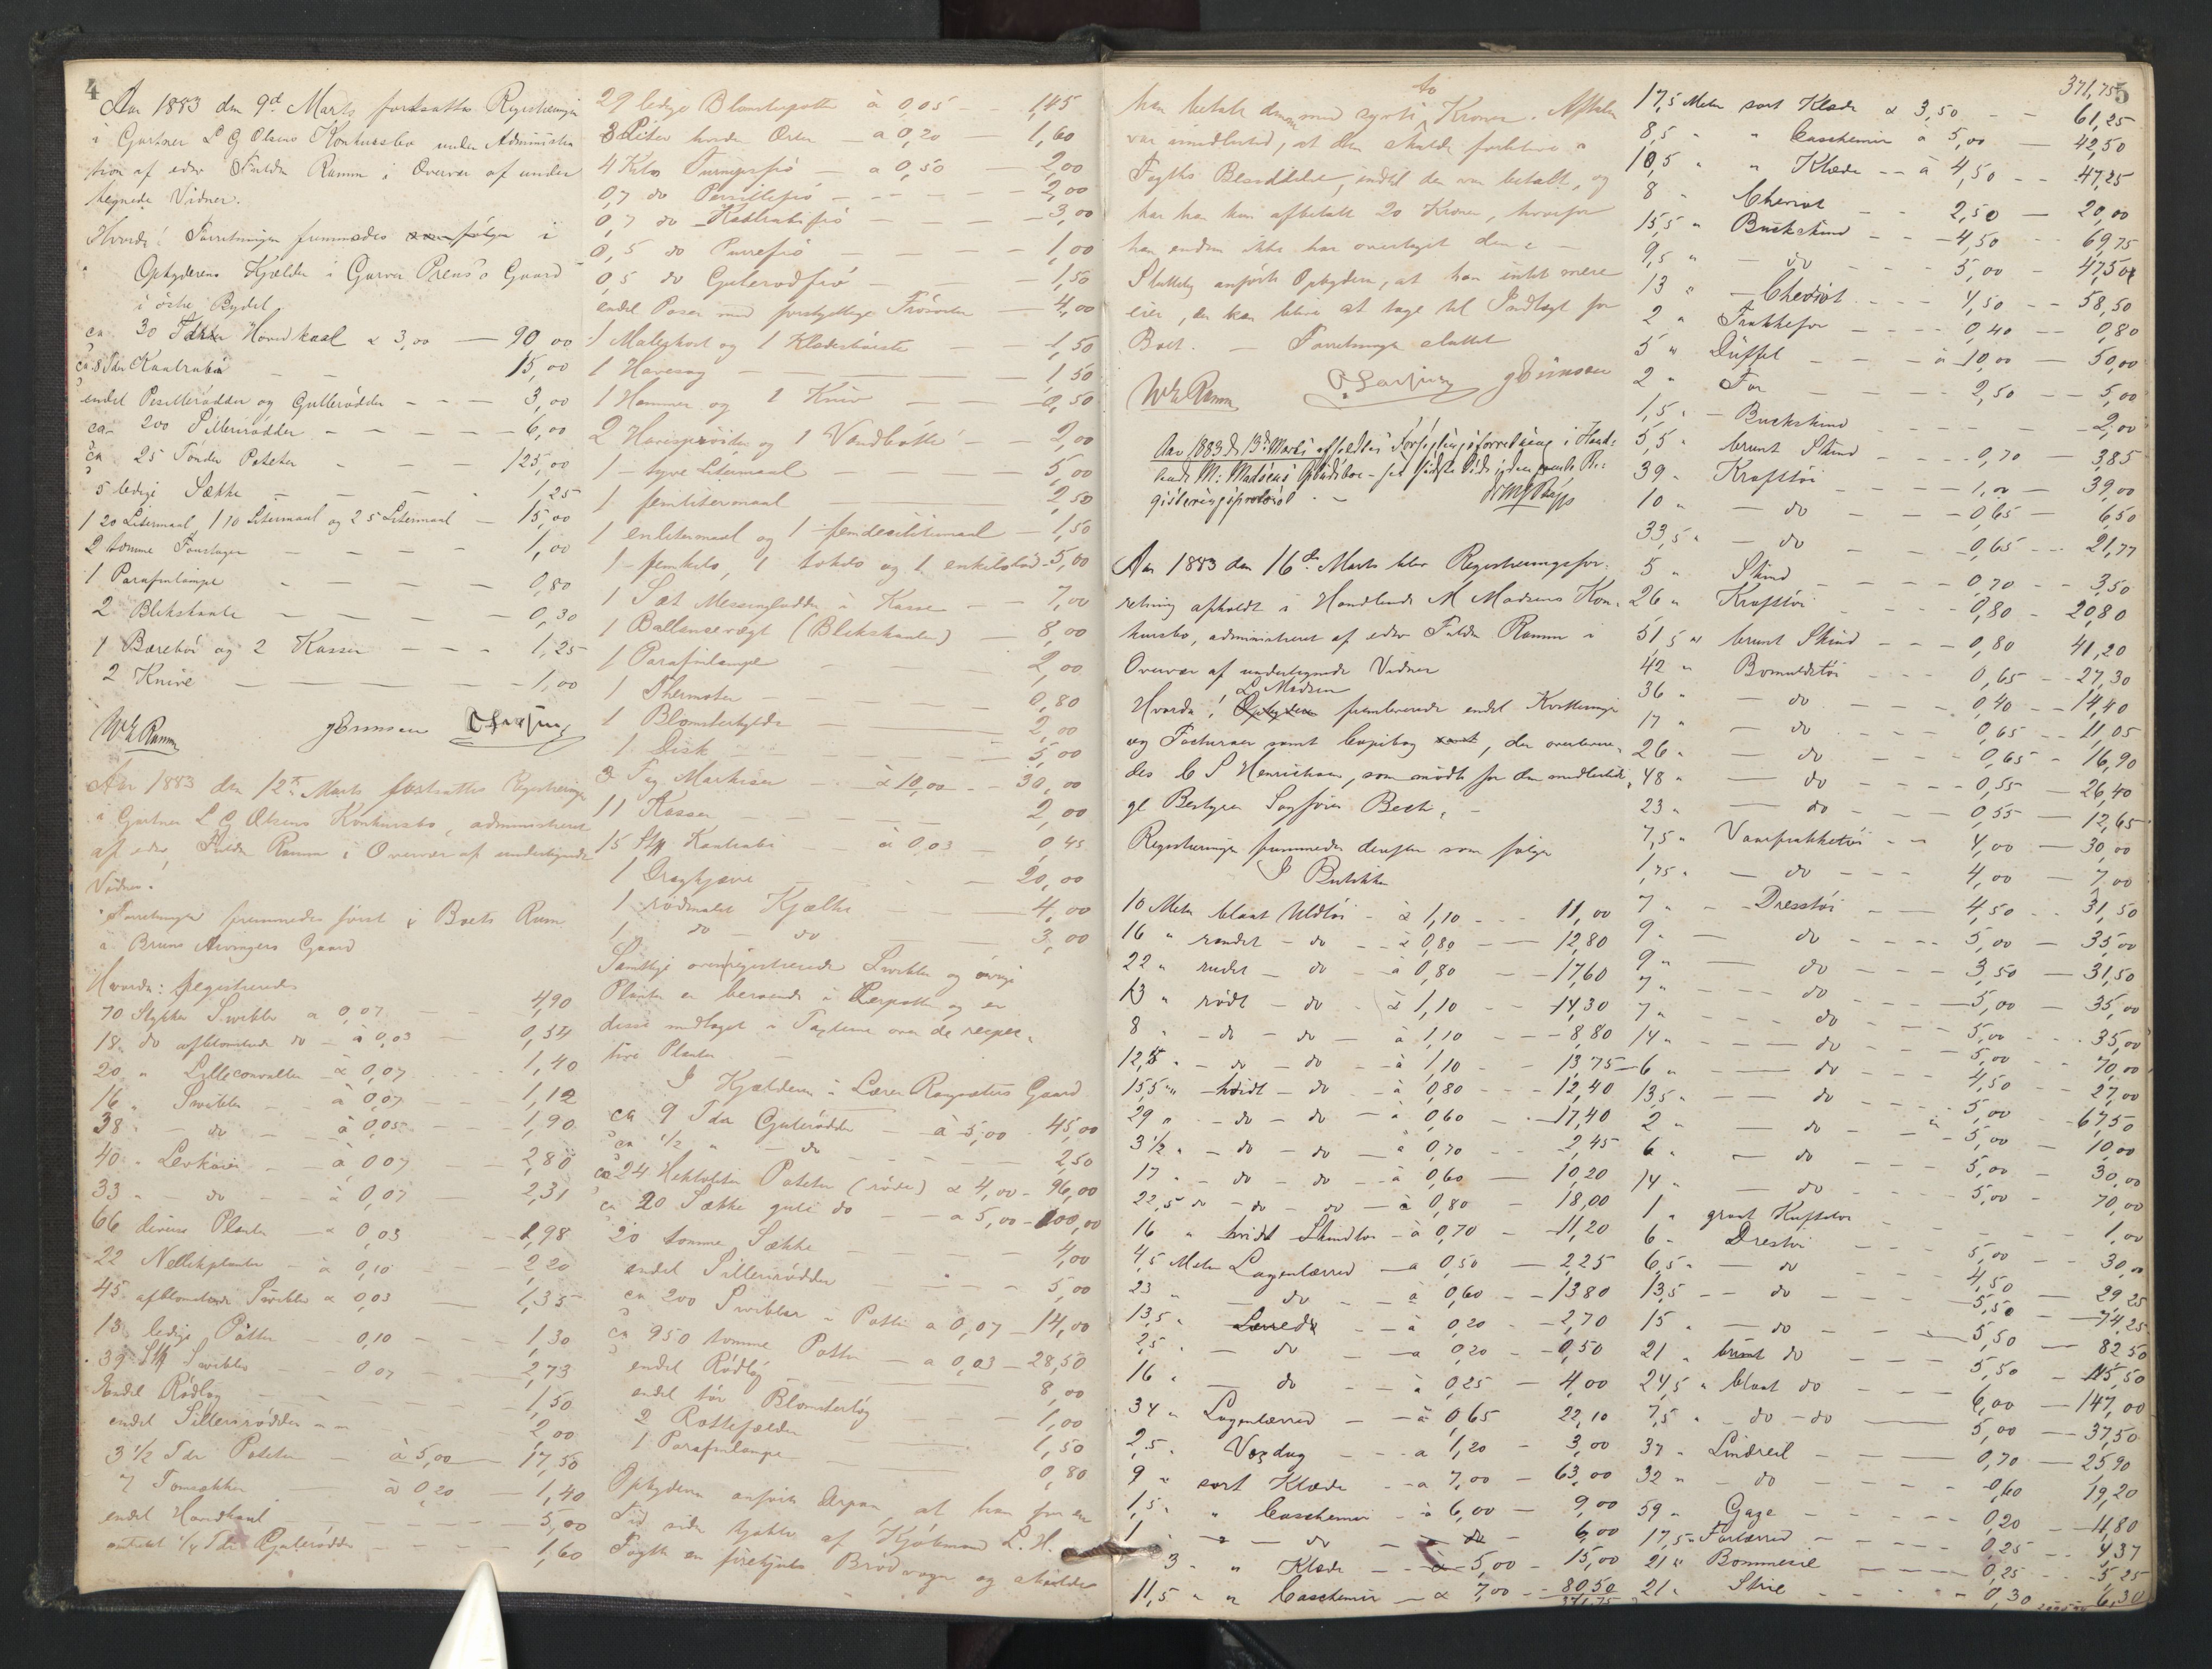 4
Aar 1883 den 9de Marts fortsattes Registreringen
i Gartner L G Olsens Konkursbo under Administra
tion af edsv Fuldm Ramm i Overvær af under
tegnede Vidner.
Hvorda! Forretningen fremmedes som følger i
Opbyderens Kjælder i Garver Prens's Gaard
i østre Bydel.
ca 30 Tdr Hovedkaal a 3,00 — 90 00
ca 8 Tdr Kaalrabi — — 15,00
endel Persillerødder og Gullerødder - - — 3,00
ca 200 Sellerirødder - - — — — 6,00
ca 25 Tønder Poteter - - — 125,00
5 ledige Sække — — - - 1,25
1 20 Litermaal, 1 10 Litermaal og 2 5 Litermaal — 15,00
2 tomme Foustager — — - - 1,00
1 Parafinlampe - - - - 0,80
2 Blikkande — — - - 0,30
1 Bærebør og 2 Kasser - - - 1,25
2 Knive — — — 1,00
W E Ramm
Aar 1883 den 12te Marts fortsattes Registreringen
i Gartner L G Olsens Konkursbo, administreret
af edsv, Fuldm Ramm i Overvær af undertegnede
Vidner.
Forretningen fremmedes først i Boets Rum
i Bruns Arvingers Gaard
Hvorda: Registreredes
70 Stykker Swibler a 0,07 - - 4,90
18 do afblomstrede do - à 0,03 - 0,54
20 " Lilleconvaller - à 0,07 - - 1,40
16 " Swibler - - à 0,07 - - 1,12
38 " - do - - à 0,05 - - 1,90
40 " Levkøier - - à 0 07 - - 2,80
33 " - do - - à 0,07 - - 2,31
66 diverse Planter - à 0,03 - - 1,98
22 Nellikplanter - à 0,10 - - 2,20
45 afblomstrede Swibler à 0,03 — 1,35
13 ledige Potter - 0,10 - - 1,30
39 Stk Swibler - - 0 07 - - 2,73
Endel Rødløg - - - - 1,50
endel Sellerirødder - - - 2,00
3 1/2 Tdr Poteter — à 5,00 — 17,50
7 Tomsækker — à 0,20 — 1,40
endel Hovedkaal — — — 5,00
antatt 1/4 Tdr Gulerødder - - - 1,60
29 ledige Blomsterpotter à 0,05 - - 1,45
8 Liter hvide Erter — a 0,20 — 1,60
4 Kilo Turnipsfrø — a 0,50 — 2,00
0,7 do Persillefrø - - - - 2,00
0,7 do Kaalrabifrø - - - 3,00
0,5 do Purrefrø - - — — 1,00
0,5 do Gulerodfrø - - — 1,50
endel Poser med forskjellige Frøsorter — 4,00
1 Malerkost og 1 Klædesbørste — 1,50
1 Havesag — — — 1,50
1 Hammer og 1 Kniv — — 0,50
2 Havesprøider og 1 Vandbøtte - - 2,00
1 - tyve Litermaal — — 5,00
1 femlitermaal — — 2,50
1 enlitermaal og 1 femdecilitermaal — 1,50
1 femkilo, 1 tokilo og 1 enkilolod - 5,00
1 Sæt Messinglodder i Kasse - - 7,00
1 Ballancevægt (Blikskaaler) — 8,00
1 Parafinlampe — — 2,00
1 Thermoter — — 0,80
1 Blomsterhylde — — 2,00
1 Disk — — — 5,00
3 Fag Markiser — à 10,00 - - 30,00
11 Kasser — — — 2,00
15 Stk Kaalrabi — à 0,03 — 0,45
1 Dragkjærre — — 20,00
1 rødmalet Kjælke — — 4,00
1 do - do — — 3,00
Samtlige ovenregistrerede Swibler og øvrige
Planter er beroende i Lerpotter og er
disse medtaget i Taxterne over de respec-
tive Planter —
I Kjælderen i Lærer Rangsæters Gaard
ca 9 Tdr Gulerødder — à 5,00 - 45,00
ca 1/2 " - do - - - 2,50
ca 24 Hektoliter Poteter (røde) à 4,00 - 96,00
ca 20 Sække gule do - - a 5,00 - 100,00
20 tomme Sække — — 4,00
endel Sellerirødder - - - 5,00
ca 200 Swibler i Potter a 0,07 - 14,00
ca 950 tomme Potter — a 0,03 - 28,50
endel Rødløg — — 8,00
endel tør Blomsterløg — 1,00
2 Rottefælder — — 1,50
1 Parafinlampe — — 0,80
Opbyderen anførte derpaa, at han for en
Tid siden kjøbte af Kjøbmand L. H.
Fogth en firehjuls Brødvogn og skulde
5
to
han betale denne med syvti Kroner. Aftalen
var imidlertid, at den skulde forblive i
Fogths Besiddelse, indtil den var betalt, og
har han kun afbetalt 20 Kroner, hvorfor
han endnu ikke har overtaget den. —
Slutteleg anførte Opbyderen, at han intet mere
eier, der kan blive at tage til Indtægt for
Boet. — Forretningen sluttet
W E Ramm
Aar 1883 d 13de Marts afholdtes Forseglingsforretning i Hand-
lende M. Madsens Opbudsbo - se sidste Side i denne Re-
gistreringsprotocol. —
Aar 1883 den 16de Marts blev Registreringsfor-
retning afholdt i Handlende M Madsens Kon-
kursbo, administreret af edsv Fuldm Ramm i
Overvær af undertegnede Vidner
Madsen
Hvorda! Opbyderen fremleverede endel Kvitteringer
og Facturaer samt Copibog samt, der overlevere-
des C S Henriksen, som mødte for den midlertidi-
ge Bestyrer Sagfører Bech. —
Registreringen fremmedes derefter som følger
I Butikken
10 Meter blaat Uldtøi - à 1,10 - - - 11,00
16 " randet - do - - à 0,80 - — 12,80
22 " rudet - do - - à 0,80 - - 17,60
13 " rødt - do - à 1,10 - - 14,30
8 " - do - do — à 1,10 - - - 8,80
12,5 " - do - do - à 1,10 - 13,75
15,5 " hvidt - do - à 0,80 - - 12,40
29 " - do - do - à 0,60 - 17,40
3 1/2 " - do - do - à 0,70 - - 2,45
17 " - do - do - à 0,60 — 10,20
22,5 do - do - do — à 0,80 — 18,00
16 " hvidt Skindtøi - à 0,70 - 11,20
4,5 Meter Lagenlærred — a 0,50 — 2,25
23 " — do — à 0,60 - - 13,80
13,5 " Lærred - - à 0,20 - - 2,70
2,5 " — do — a 0,20 - - 0,50
16 " — do — à 0,25 - 4,00
34 " Lagenlærred — à 0,65 22,10
2,5 " Voxdug — a 1,20 - 3,00
9 " sort Klæde - - a 7,00 — 63,00
1,5 " " Caschemir - à 6,00 — 9,00
1 " - do — do - 6,00
3 " " Klæde - - à 5,00 - 15,00
11,5 " " Caschemir — à 7,00 - - 80,50
371,75
371,75
17,5 Meter sort Klæde a 3,50 - - 61,25
8,5 " " Caschemir à 5,00 — 42,50
10,5 " " Klæde - - à 4,50 - - 47,25
8 " Cheviot - - 2,50 — 20,00
15,5 " Buckskind - - 4,50 - - 69,75
9,5 " — do - - - 5,00 - 47,50
13 " — Cheviot - - - 4,50 - - 58,50
2 " Frakkefor - - - - 0,40 - - 0,80
5 " Düffel - - - à 10,00 — 50,00
2 " For — - - 2,50 - - 5,00
1,5 " — Buckskind — — - 2,00
5,5 " brunt Skind - - - - 0,70 — 3,85
39 " Kraftstøi - - - - 1,00 - 39,00
10 " — do - - - 0,65 - 6,50
33,5 " — do - - - 0,65 - - - 21,77
5 " Skind - - - - 0,70 - - 3,50
26 " Kraftstøi - - - - 0,80 - 20,80
51,5 " brunt Skind - - - 0,80 41,20
42 " Bomuldstøi - - - 0,65 - - 27,30
36 " — do - - - 0,40 - 14,40
17 " — do - - - 0,65 - - 11,05
26 " — do - - - 0,65 - 16,90
48 " — do - - - - 0,55 - - 26,40
23 " — do - - - 0,55 — 12,65
7,5 " Vaarfrakketøi - - 4,00 — 30,00
1,75 " - do - - - 4,00 — 7,00
7 " - Dresstøi - — 4,50 - - 31,50
9 " — do - - - - 5,00 — 35,00
9 " — do - - - 3,50 — 31,50
7 " — do - - - 5,00 - 35,00
7 " - - - do - - - 5,00 - - - 35,00
14 " - — do - - - 5,00 - 70,00
6 " — do - - - 4,50 - - 27,00
13,5 " — do - - - 5,00 - 67,50
2 " — do - - - 5,00 - 10,00
6 " — do - - - 5,00 - 30,00
14 " — do - - - 5,00 - 70,00
1 " graat Kuffetøi - - - 1,00
6 " Drestøi - - - 5,00 - - 30,00
6,5 " — do - - - 4,50 - - 29,25
13,5 - - do - - - 5,50 - - 74,25
15 " — do - - - 5,50 — 82,50
21 " brunt do - - - 5,50 - 115,50
24,5 " blaat do - - - 6,00 — 147,00
7,5 " - do - do — 5,00 — 37,50
37 " Lindreil — - - 0,70 — 25,90
32 " do - - - - 0,60 19,20
59 " Gaze - - - 0,20 - - 11,80
17,5 " Forlærred - - - 0,25 - - 4,37
21 " Bommesie - - - - 0,25 - - 5,25
21 " Strie - - - - 0,30 6,30